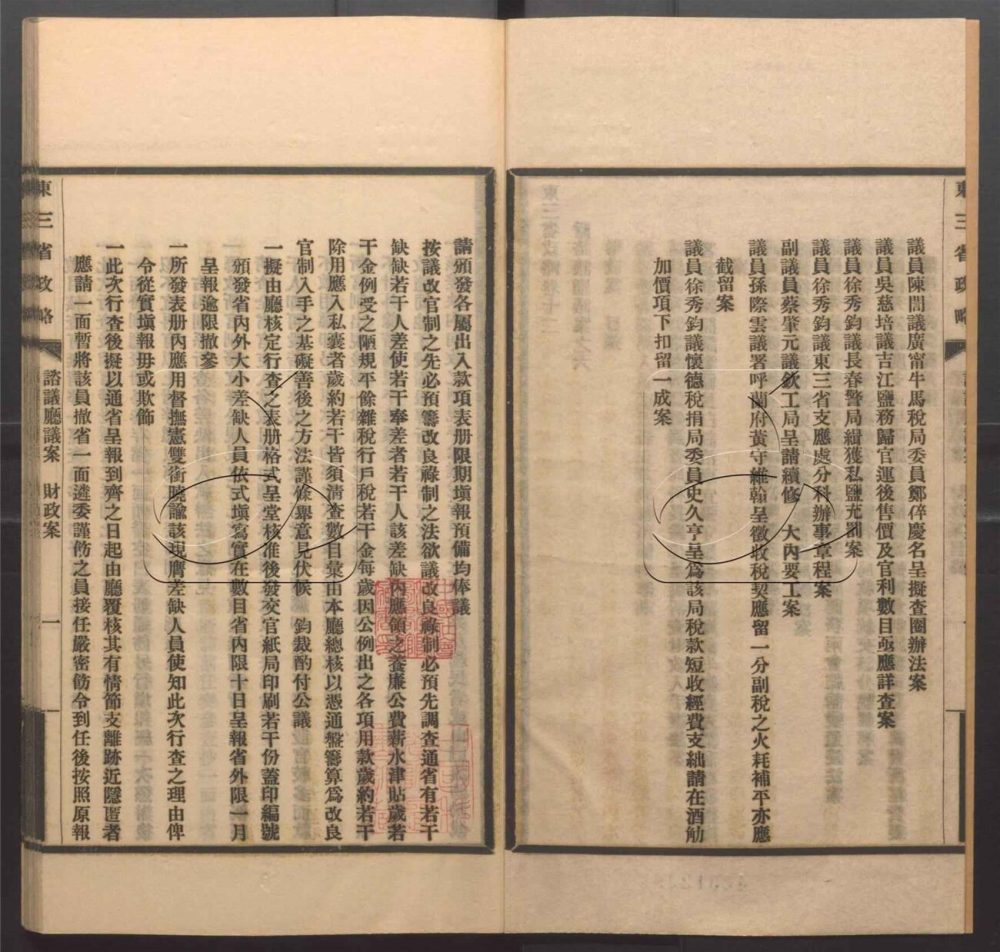 東三省政略
議員陳誾議廣甯牛馬稅局委員鄭倅慶名呈擬查圈辦法案
議員吳慈培議吉江鹽務歸官運後售價及官利數目亟應詳查案
議員徐秀鈞議長春警局緝獲私鹽充割案
議員徐秀鈞議東三省支應處分科辦事章程案
副議員蔡肇元議欽工局呈請續修　大內要工案
議員孫際雲議署呼蘭府黃守維翰呈徵收稅契應留一分副稅之火耗補平亦應
截留案
議員徐秀鈞議懷德稅捐局委員史久亨呈爲該局稅款短收經費支絀請在酒觔
加價項下扣留一成案
請頒發各屬出入款項表册限期塡報預備均俸議
按議改官制之先必預籌改良祿制之法欲議改良祿制必預先調查通省有若干
缺缺若干人差使若干奉差者若干人該差缺內應領之養廉公費薪水津貼歲若
干金例受之陋規平餘雜稅行戶稅若干金每歲因公例出之各項用款歲約若干
除用應入私囊者歲約若干皆須淸查數目彙由本廳總核以憑通盤籌算爲改良
官制入手之基礎善後之方法謹條舉意見伏候　鈞裁酌付公議
一擬由廳核定行查之表册格式呈堂核准後發交官紙局印刷若干份蓋印編號
頒發省內外大小差缺人員依式塡寫實在數目省內限十日呈報省外限一月
呈報逾限撤參
一所發表册內應用督撫憲雙銜曉諭該現膺差缺人員使知此次行查之理由俾
令從實塡報毋或欺飾
一此次行查後擬以通省呈報到齊之日起由廳覆核其有情節支離跡近隱匿者
應請一面暫將該員撤省一面遴委謹飭之員接任嚴密飭令到任後按照原報
東三省政略
諮議廳議案　財政案
一